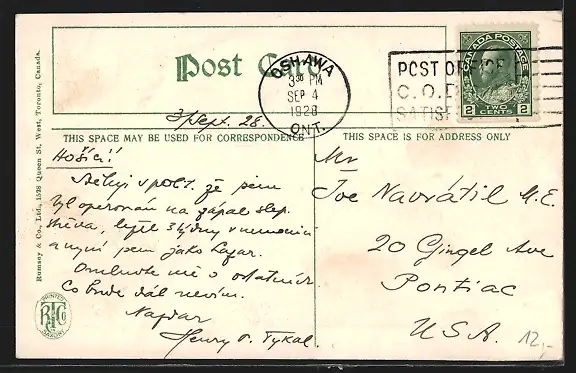 Post Card
OSHAWA
3 30 PM
SEP 4
1928
ONT.
POST OFFICE
C.O.D.
SATISF
CANADA POSTAGE
2 TWO CENTS 2
3 Sept. 28.
THIS SPACE MAY BE USED FOR CORRESPONDENCE
THIS SPACE IS FOR ADDRESS ONLY
Rumsey & Co., Ltd., 1528 Queen St. West, Toronto, Canada.
Hošíci!
že jsem
byl operován na zápal slep.
střeva, ležel 3 týdny v nemocnici
a nyní jsem jako Lazar.
Omluvte mě
Co bude dál nevím.
Nazdar
Henry F. Tykal.
Mr
Joe Navrátil M.E.
20 Gingel Ave
Pontiac
USA.
12,-
PRINTED
R&Co